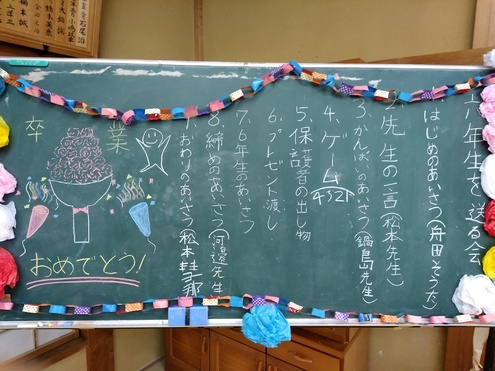 六年生を送る会
1.はじめのあいさつ(舟田そうた)
2.先生の一言(松本先生)
3.かんぱいのあいさつ(鍋島先生)
4.ゲーム
4321
5.保護者の出し物
6.プレゼント渡し
7.6年生のあいさつ
8.締めのあいさつ(河邊先生)
9.おわりのあいさつ(松本
卒業
おめでとう!